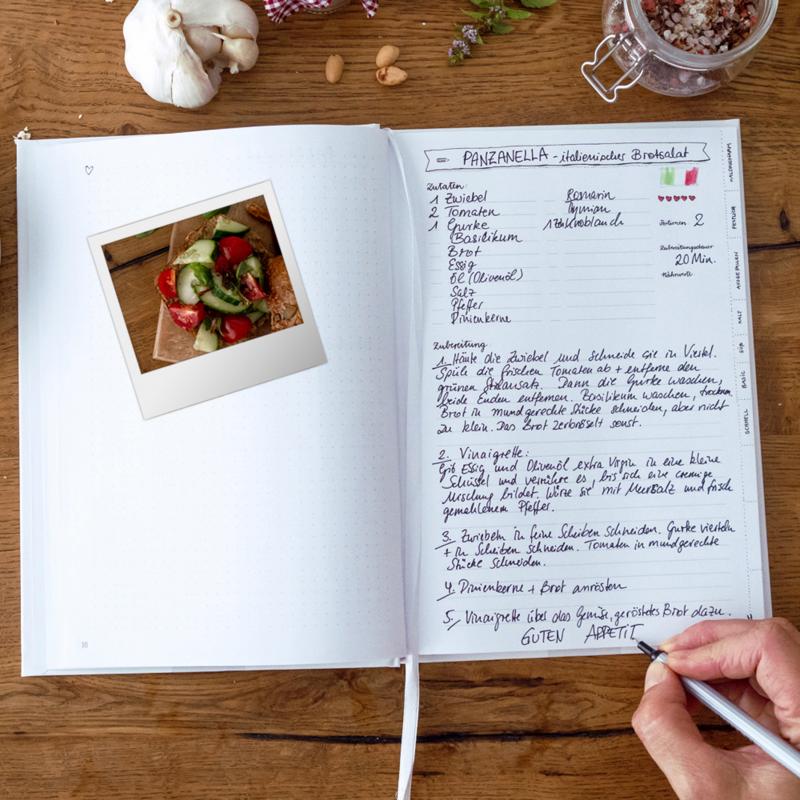 PANZANELLA - italienischer Brotsalat
Zutaten:
1 Zwiebel
2 Tomaten
1 Gurke
Basilikum
Brot
Essig
Öl (Olivenöl)
Salz
Pfeffer
Pinienkerne
Rosmarin
Tymian
Knoblauch
Personen 2
Zubereitungsdauer
20 Min.
Nährwerte
Zubereitung:
1. Häute die Zwiebel und schneide sie in Viertel.
Spüle die frischen Tomaten ab + entferne den
grünen Stielansatz. Dann die Gurke waschen,
beide Enden entfernen. Basilikum waschen, trocknen.
Brot in mundgerechte Stücke schneiden, aber nicht
zu klein. Das Brot zerbröselt sonst.
2. Vinaigrette:
Gib Essig und Olivenöl extra Virgin in eine kleine
Schüssel und verrühre es, bis sich eine cremige
Mischung bildet. Würze sie mit Meersalz und frisch
gemahlenem Pfeffer.
3. Zwiebeln in feine Scheiben schneiden. Gurke vierteln
+ in Scheiben schneiden. Tomaten in mundgerechte
Stücke schneiden.
4. Pinienkerne + Brot anrösten
5. Vinaigrette über das Gemüse, geröstetes Brot dazu.
GUTEN APPETIT
SALZ
SÜß
BASIC
SCHNELL